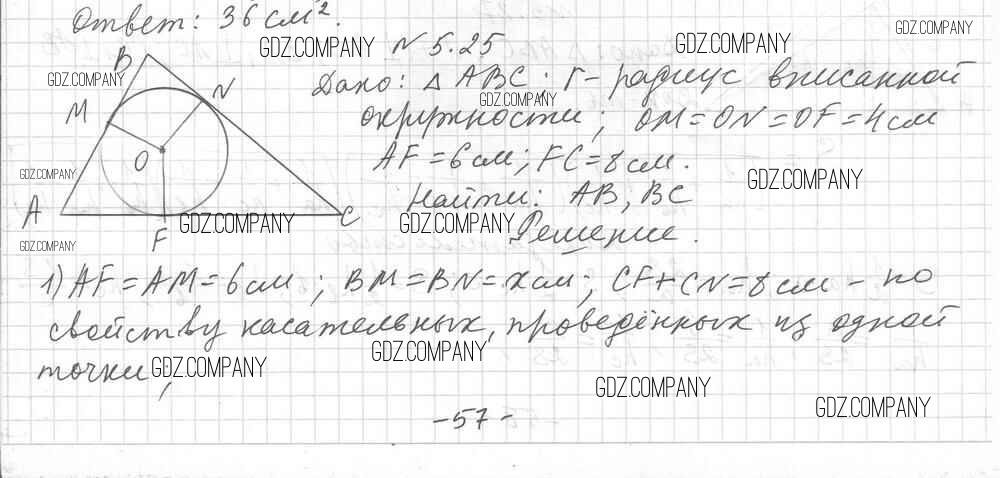 Ответ: 36 см².
GDZ.COMPANY
N 5.25
GDZ.COMPANY
GDZ.COMPANY
B
GDZ.COMPANY
Дано: △ ABC; r - радиус вписанной
GDZ.COMPANY
M
N
окружности; OM=ON=OF=4см
O
AF=6см; FC=8см.
GDZ.COMPANY
GDZ.COMPANY
Найти: AB; BC
A
F
C
GDZ.COMPANY
GDZ.COMPANY
Решение.
GDZ.COMPANY
1) AF=AM=6см; BM=BN=xсм; CF+CN=8см - по
свойству касательных, проведённых из одной
GDZ.COMPANY
точки;
GDZ.COMPANY
GDZ.COMPANY
GDZ.COMPANY
-57-